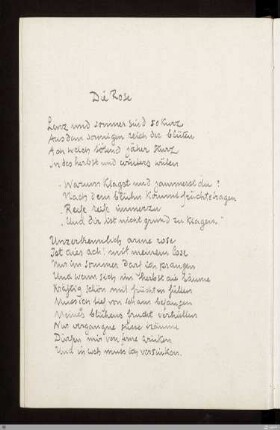 Die Rose
Lenz und sommer sind so kurz
Aus dem sonnigen reich der blüten
Ach welch jäher sturz
In des herbst und winters wüten
- Warum klagst und jammerst du?
Nach dem blühn kommt früchtetragen
Reife reife immerzu
Und dir ist nicht grund zu klagen.
Unzerthennlich arme rose
Ist dies ach! mit meinem lose
Nur im sommer darf ich prangen
Und wenn sich im herbst die bäume
Kräftig schön mit früchten füllen
Muss ich tief von scham befangen
Meines blühens frucht verhüllen
Nur vergangne süsse träume
Dürfen mir von ferne winken
Und in euch muss ich versinken.